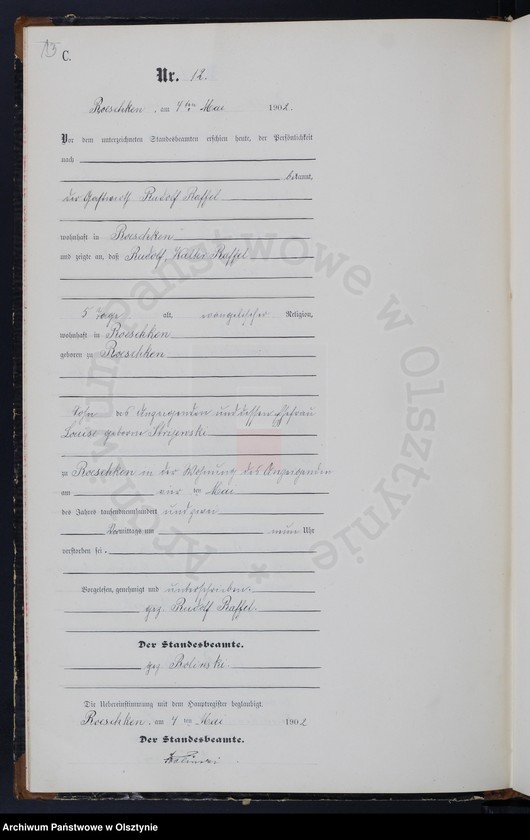 C.
Nr. 12.
Roeschken, am 4ten Mai 1902.
Vor dem unterzeichneten Standesbeamten erschien heute, der Persönlichkeit
nach
bekannt,
der Gastwirth Rudolf Raffel
wohnhaft in Roeschken
und zeigte an, daß Rudolf, Walter Raffel
5 Tage alt, evangelischer Religion,
wohnhaft in Roeschken
geboren zu Roeschken
Sohn des Anzeigenden und dessen Ehefrau
Louise geborene
zu Roeschken in der Wohnung des Anzeigenden
am vier ten Mai
des Jahres tausendneunhundert und zwei
Vormittags um neun Uhr
verstorben sei.
Vorgelesen, genehmigt und unterschrieben.
gez. Rudolf Raffel.
Der Standesbeamte.
gez.
Die Uebereinstimmung mit dem Hauptregister beglaubigt.
Roeschken, am 4 ten Mai 1902
Der Standesbeamte.
Archiwum Państwowe w Olsztynie
Archiwum Państwowe w Olsztynie *